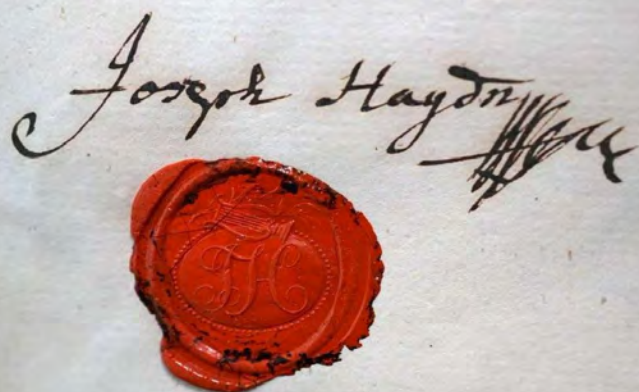 Joseph Haydn
JH